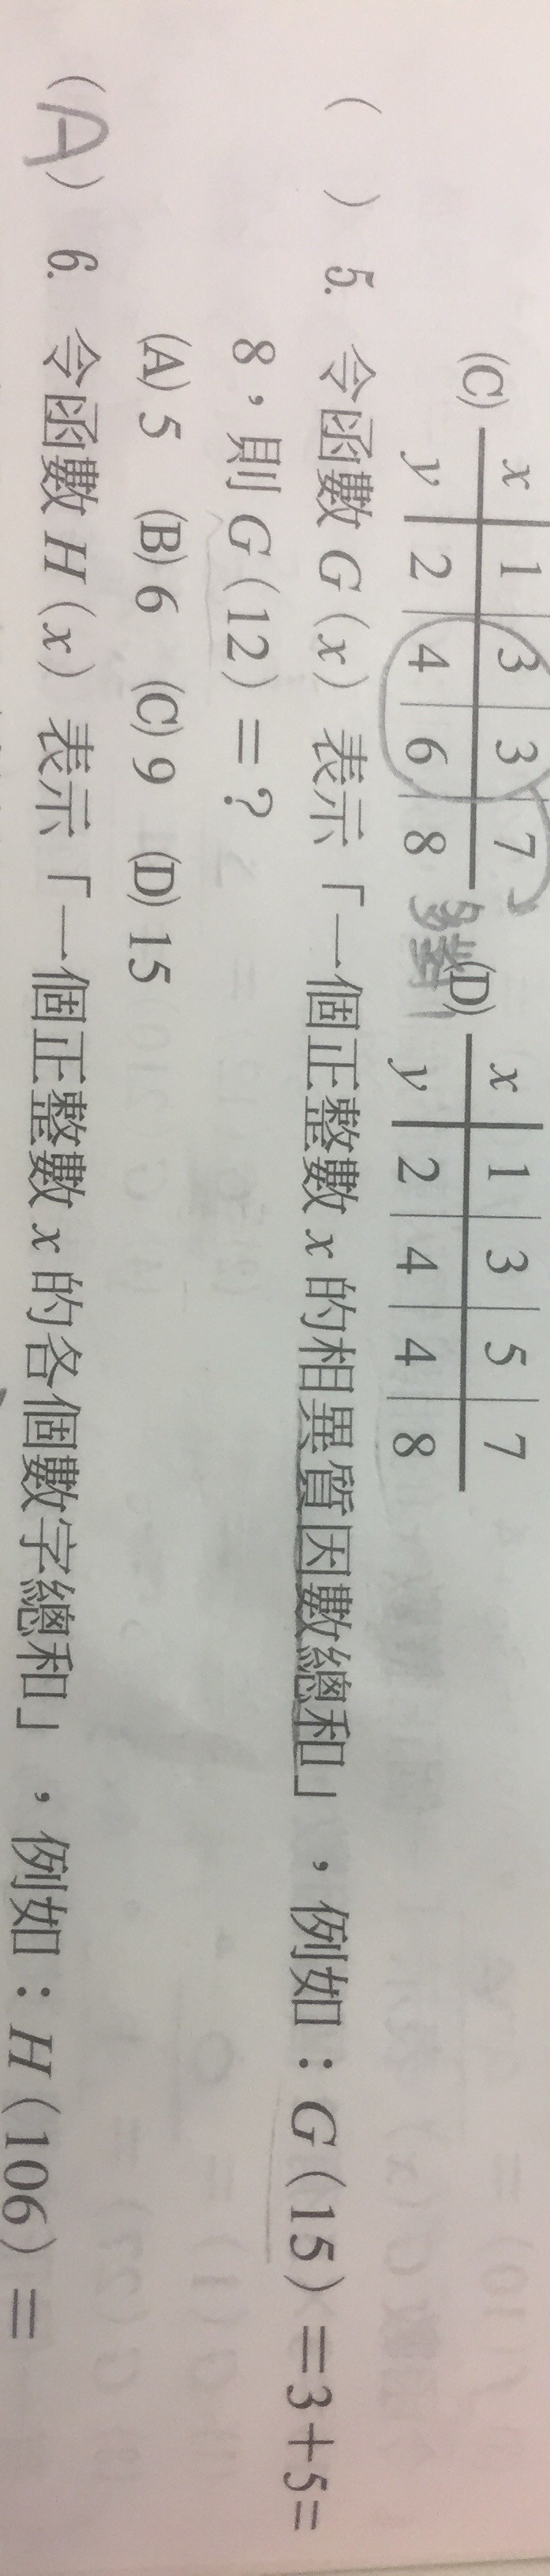 (C) x 1 3 3 7 (D) x 1 3 5 7
y 2 4 6 8 多對1 y 2 4 4 8
( ) 5. 令函數 G(x) 表示「一個正整數 x 的相異質因數總和」,例如:G(15)=3+5=
8,則 G(12)=?
(A) 5 (B) 6 (C) 9 (D) 15
(A) 6. 令函數 H(x) 表示「一個正整數 x 的各個數字總和」,例如:H(106)=